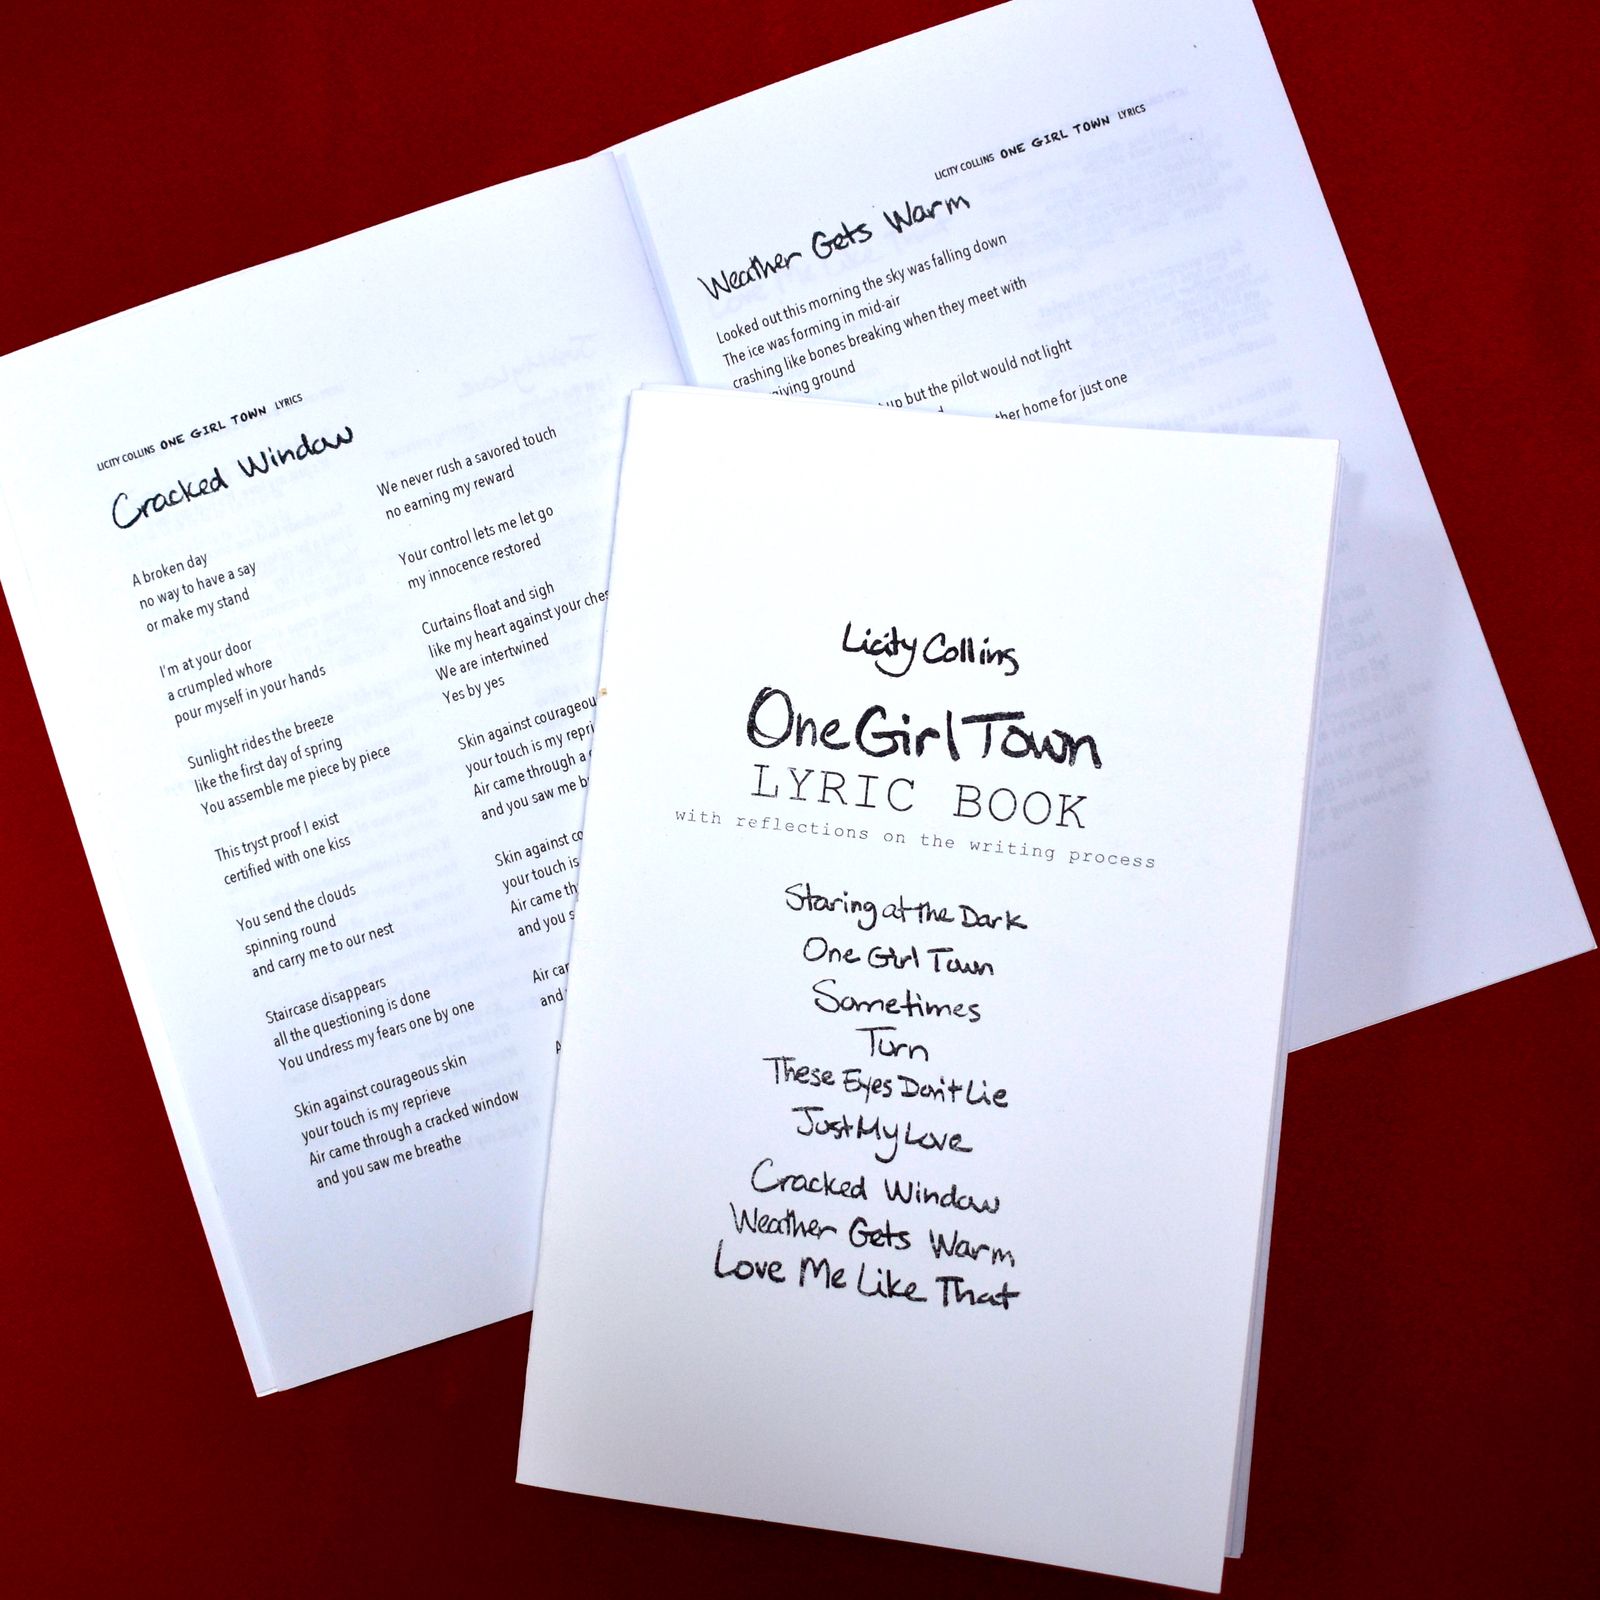 LICITY COLLINS ONE GIRL TOWN LYRICS
Cracked Window
A broken day
no way to have a say
or make my stand
I'm at your door
a crumpled whore
pour myself in your hands
Sunlight rides the breeze
like the first day of spring
You assemble me piece by piece
This tryst proof I exist
certified with one kiss
You send the clouds
spinning round
and carry me to our nest
Staircase disappears
all the questioning is done
You undress my fears one by one
Skin against courageous skin
your touch is my reprieve
Air came through a cracked window
and you saw me breathe
We never rush a savored touch
no earning my reward
Your control lets me let go
my innocence restored
Curtains float and sigh
like my heart against your
We are intertwined
Yes by yes
Skin against
your touch is my
Air came through a
and you saw me
Skin against
your touch is
Air came
and you
Air
and
LICITY COLLINS ONE GIRL TOWN LYRICS
Weather Gets Warm
Looked out this morning the sky was falling down
The ice was forming in mid-air
crashing like bones breaking when they meet with
giving ground
up but the pilot would not light
home for just one
Licity Collins
One Girl Town
LYRIC BOOK
with reflections on the writing process
Staring at the Dark
One Girl Town
Sometimes
Turn
These Eyes Don't Lie
Just My Love
Cracked Window
Weather Gets Warm
Love Me Like That